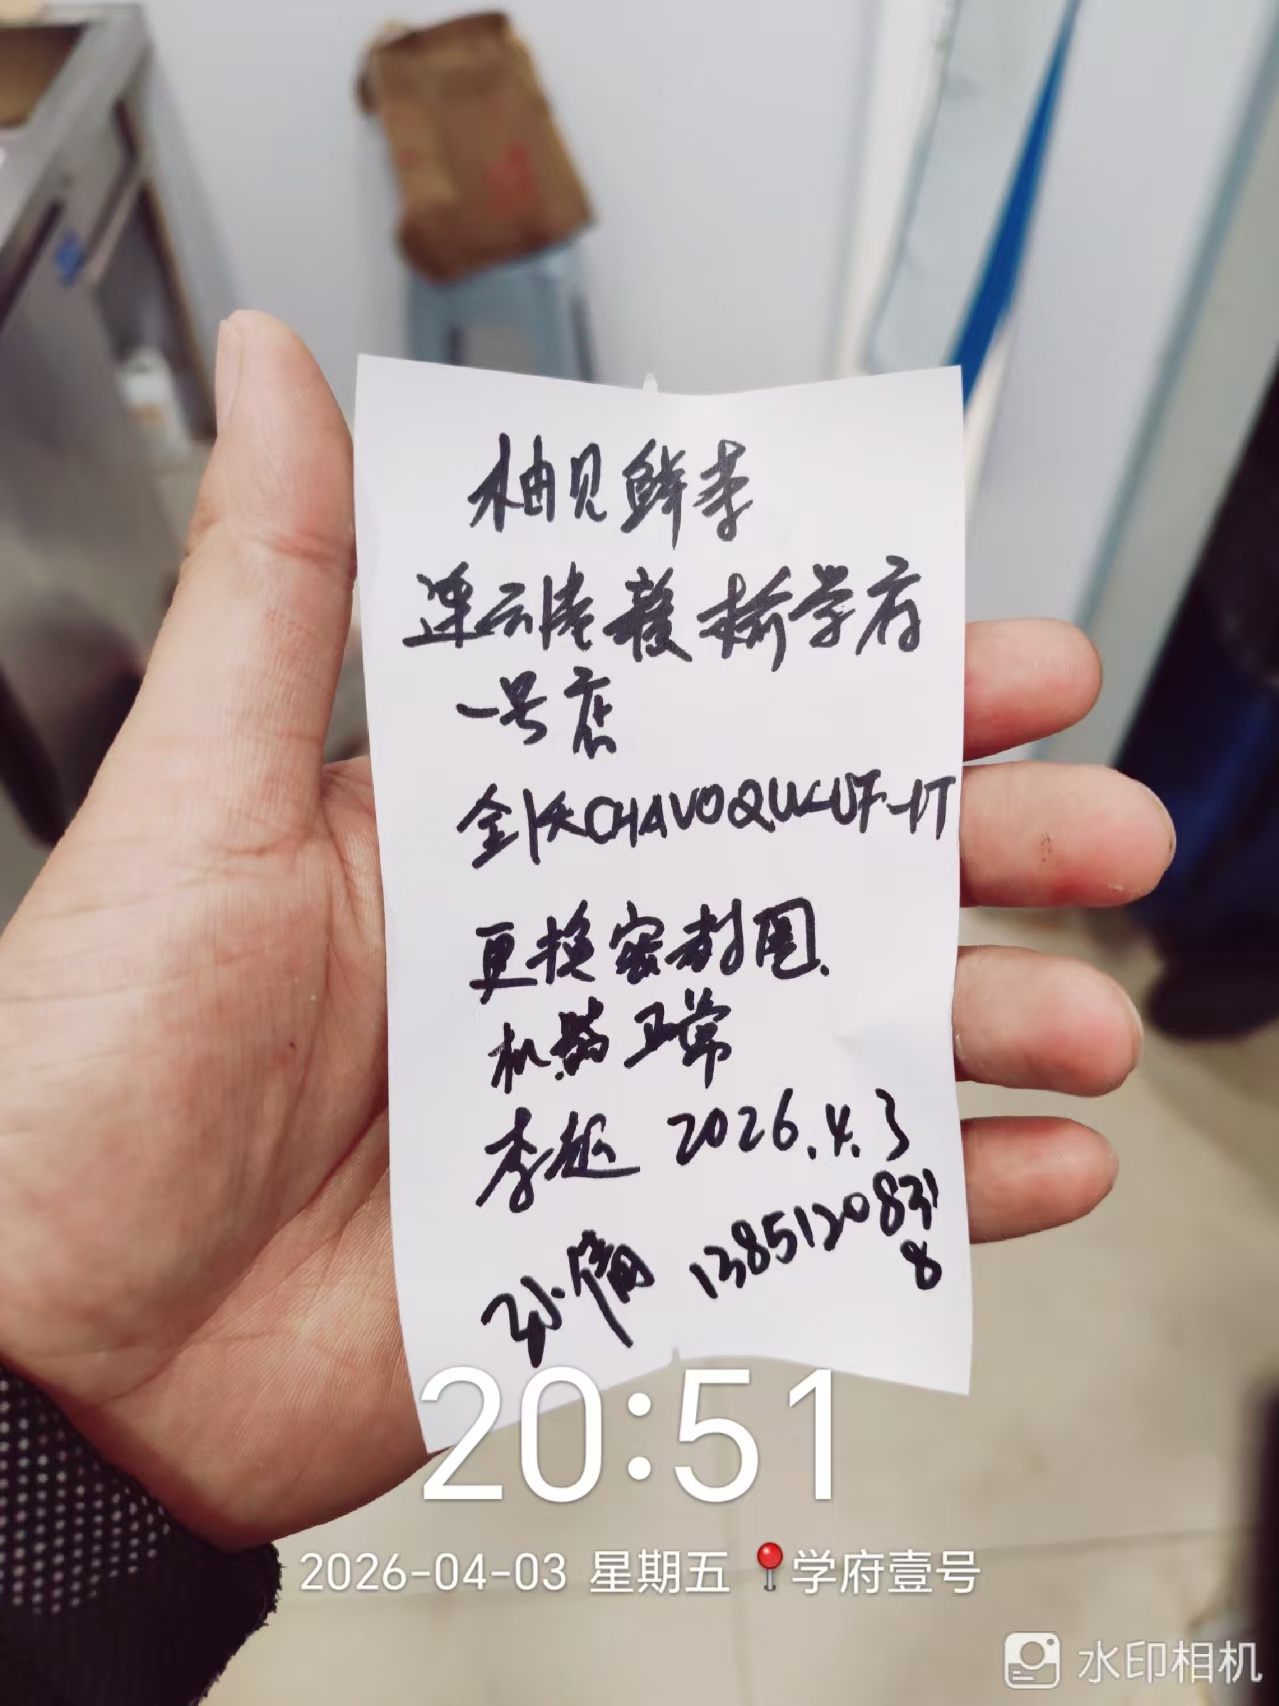 柚见鲜茶
连云港赣榆学府
一号店
更换密封圈.
机器正常
李超 2026.4.3
孙倩
20:51
2026-04-03 星期五 学府壹号
水印相机